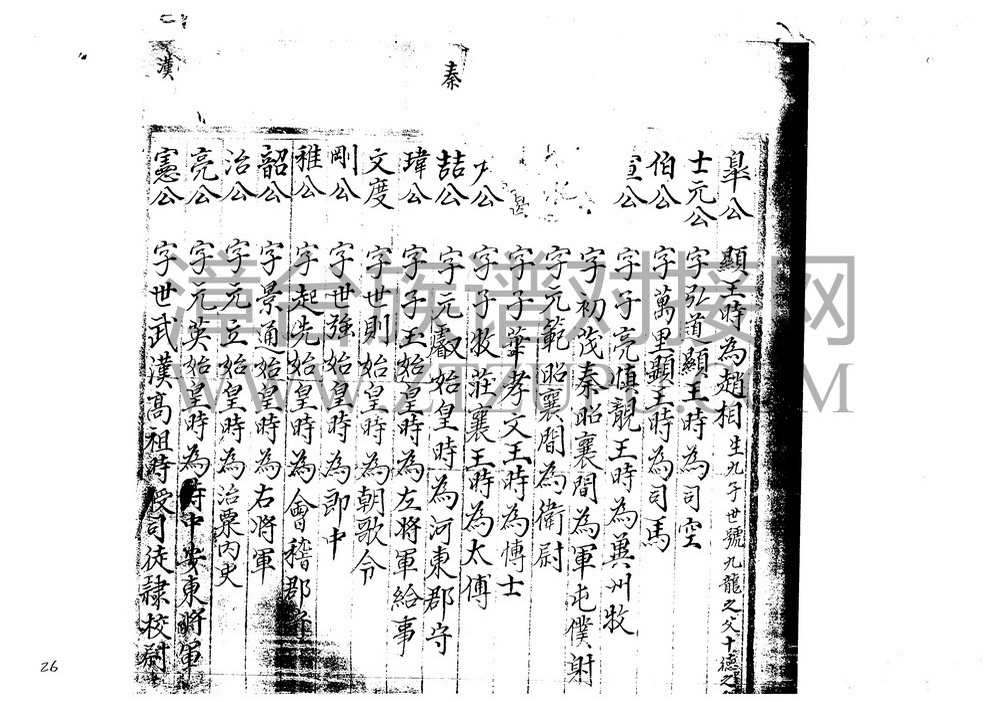 秦
漢
皐公 顯王時為趙相生九子世號九龍之父十德之
士元公 字弘道顯王時為司空
伯公 字萬里顯王時為司馬
宣公 字子亮慎靚王時為兾州牧
字初茂秦昭襄間為軍屯僕射
字元範昭襄間為衛尉
字子華孝文王時為博士
公 字子牧莊襄王時為太傅
喆公 字元叡始皇時為河東郡守
瑋公 字子玉始皇時為左將軍給事
文度 字世則始皇時為朝歌令
剛公 字世强始皇時為郎中
稚公 字起先始皇時為會稽郡
韶公 字景通始皇時為右將軍
治公 字元立始皇時為治粟內史
亮公 字元英始皇時為侍中安東將軍
憲公 字世武漢高祖時授司徒隷校尉
漳台族谱对接网
WWW.ZTZUPU.COM
26